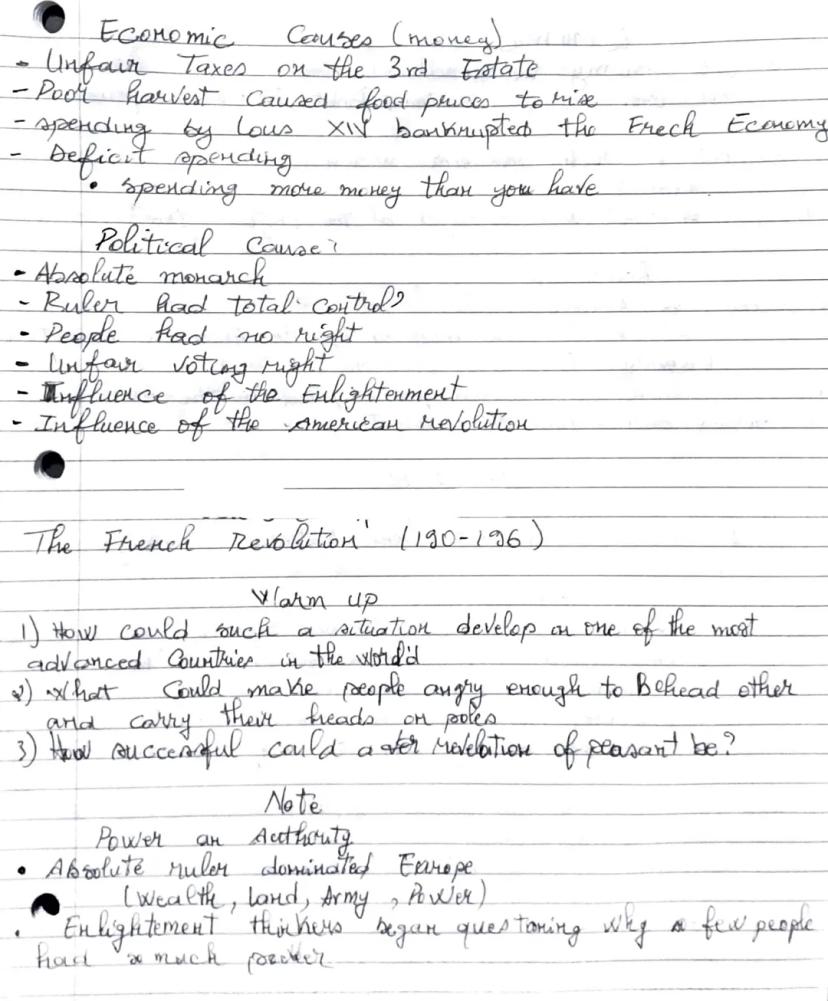 Economic Causes (money)
- Unfair Taxes on the 3rd Estate
- Poor harvest caused food prices to rise
- spending by Lous XIV bankrupted the Frech Economy
- Deficit spending
• spending more money than you have
Political Cause:
- Absolute monarch
- Ruler had total control
- People had no right
- Unfair voting right
- Influence of the Enlightenment
- Influence of the American revolution
The French Revolution (190-196)
Warm up
1) How could such a situation develop in one of the most
advanced Countries in the world
2) What Could make people angry enough to Behead other
and carry their heads on poles
3) How successful could a revelation of peasant be?
Note
Power an Authority
• Absolute ruler dominated Europe
(Wealth, Land, Army, Power)
• Enlightement thinkers began questoning why a few people
had so much power